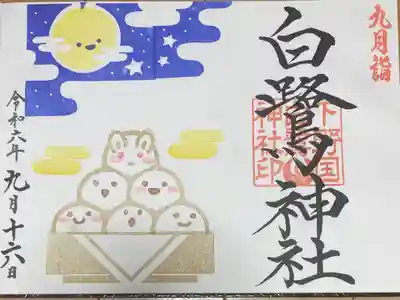 九月詣
白鷺神社
下野国
神社印
令和六年九月十六日